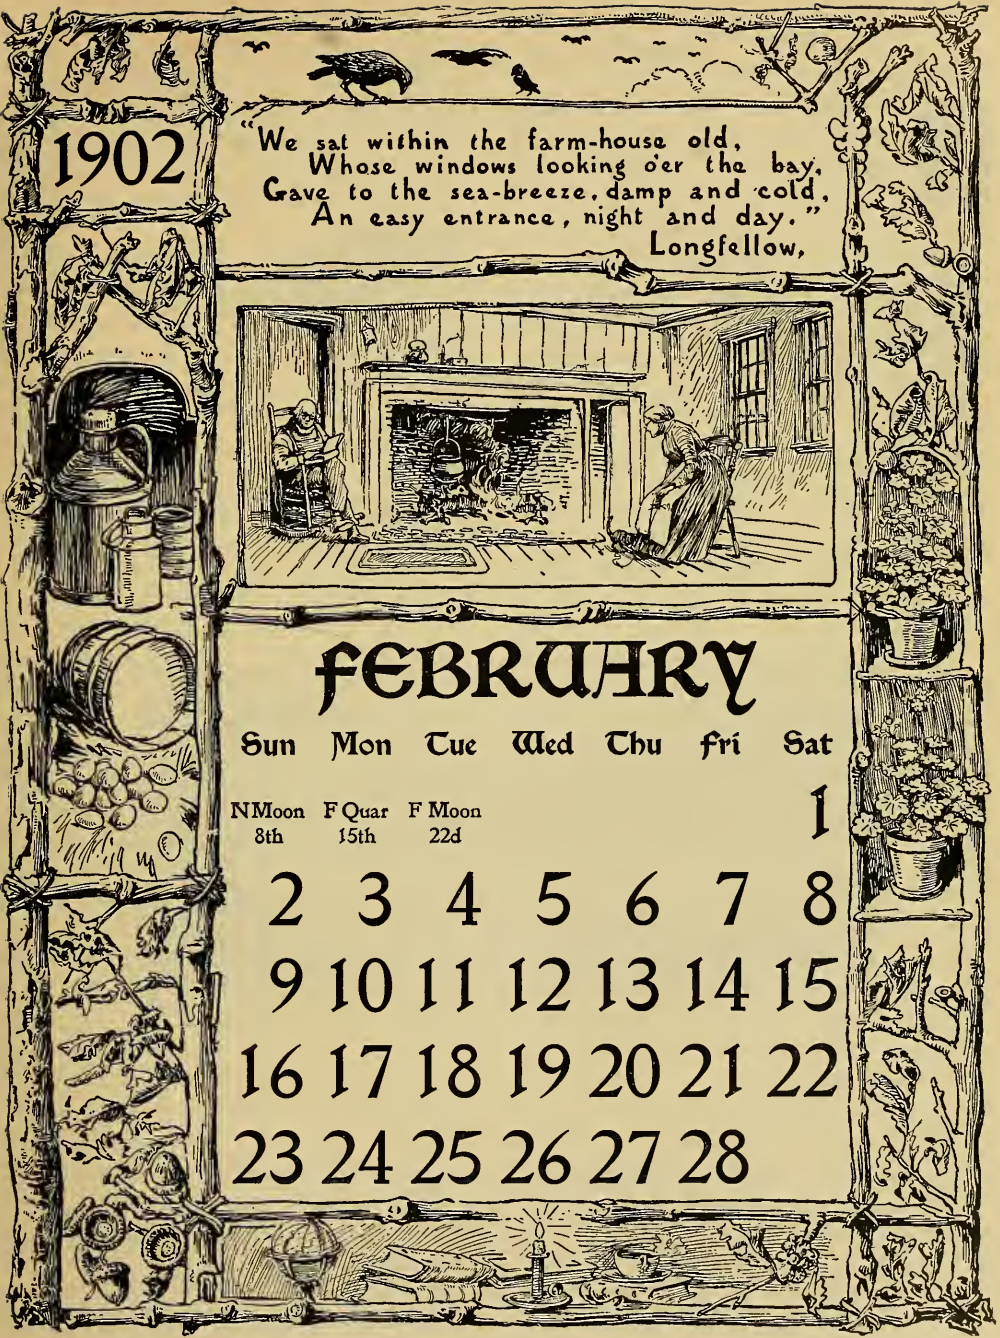 1902
"We sat within the farm-house old,
Whose windows looking o'er the bay,
Gave to the sea-breeze, damp and cold,
An easy entrance, night and day."
Longfellow,
FEBRUARY
Sun Mon Tue Wed Thu Fri Sat
1
N Moon F Quar F Moon
8th 15th 22d
2 3 4 5 6 7 8
9 10 11 12 13 14 15
16 17 18 19 20 21 22
23 24 25 26 27 28